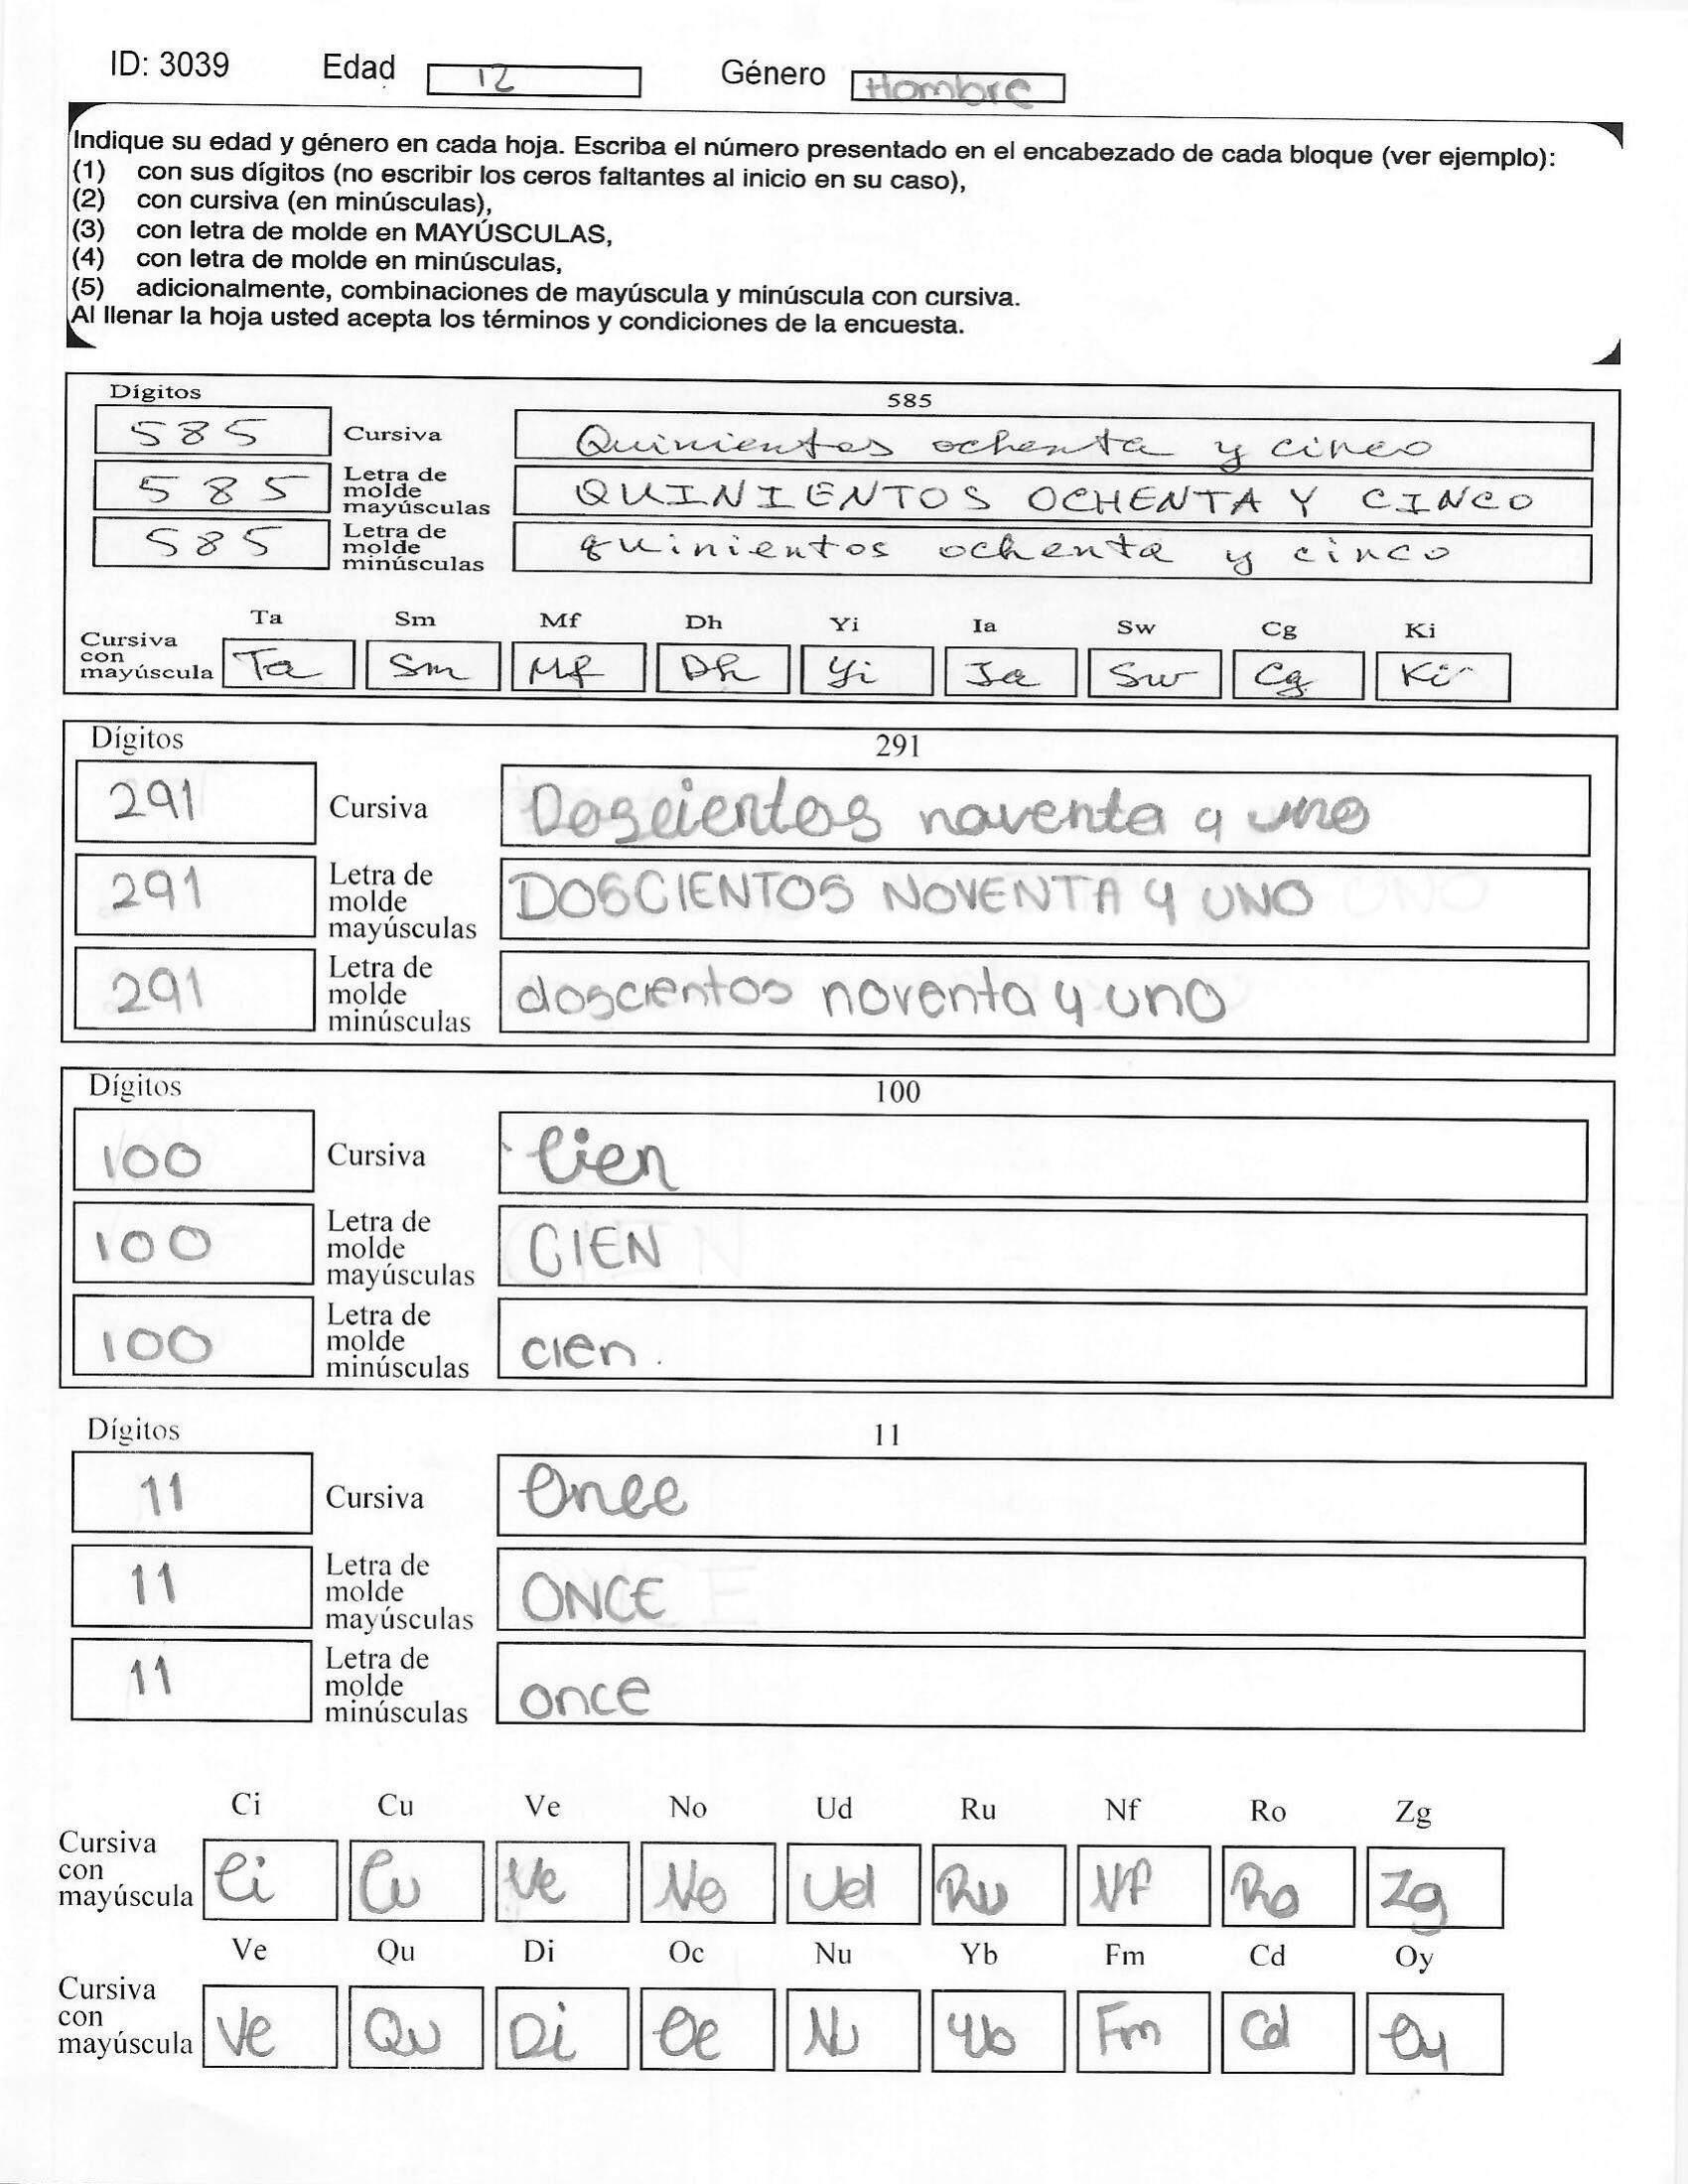 ID: 3039 Edad 12 Género Hombre
Indique su edad y género en cada hoja. Escriba el número presentado en el encabezado de cada bloque (ver ejemplo):
(1) con sus dígitos (no escribir los ceros faltantes al inicio en su caso),
(2) con cursiva (en minúsculas),
(3) con letra de molde en MAYÚSCULAS,
(4) con letra de molde en minúsculas,
(5) adicionalmente, combinaciones de mayúscula y minúscula con cursiva.
Al llenar la hoja usted acepta los términos y condiciones de la encuesta.
Dígitos 585
585 Cursiva Quinientos ochenta y cinco
585 Letra de molde mayúsculas QUINIENTOS OCHENTA Y CINCO
585 Letra de molde minúsculas quinientos ochenta y cinco
Ta Sm Mf Dh Yi Ia Sw Cg Ki
Cursiva con mayúscula Ta Sm Mf Dh Yi Ia Sw Cg Ki
Dígitos 291
291 Cursiva Doscientos noventa y uno
291 Letra de molde mayúsculas DOSCIENTOS NOVENTA Y UNO
291 Letra de molde minúsculas doscientos noventa y uno
Dígitos 100
100 Cursiva Cien
100 Letra de molde mayúsculas CIEN
100 Letra de molde minúsculas cien.
Dígitos 11
11 Cursiva Once
11 Letra de molde mayúsculas ONCE
11 Letra de molde minúsculas once
Ci Cu Ve No Ud Ru Nf Ro Zg
Cursiva con mayúscula Ci Cu Ve No Ud Ru Nf Ro Zg
Ve Qu Di Oc Nu Yb Fm Cd Oy
Cursiva con mayúscula Ve Qu Di Oc Nu Yb Fm Cd Oy